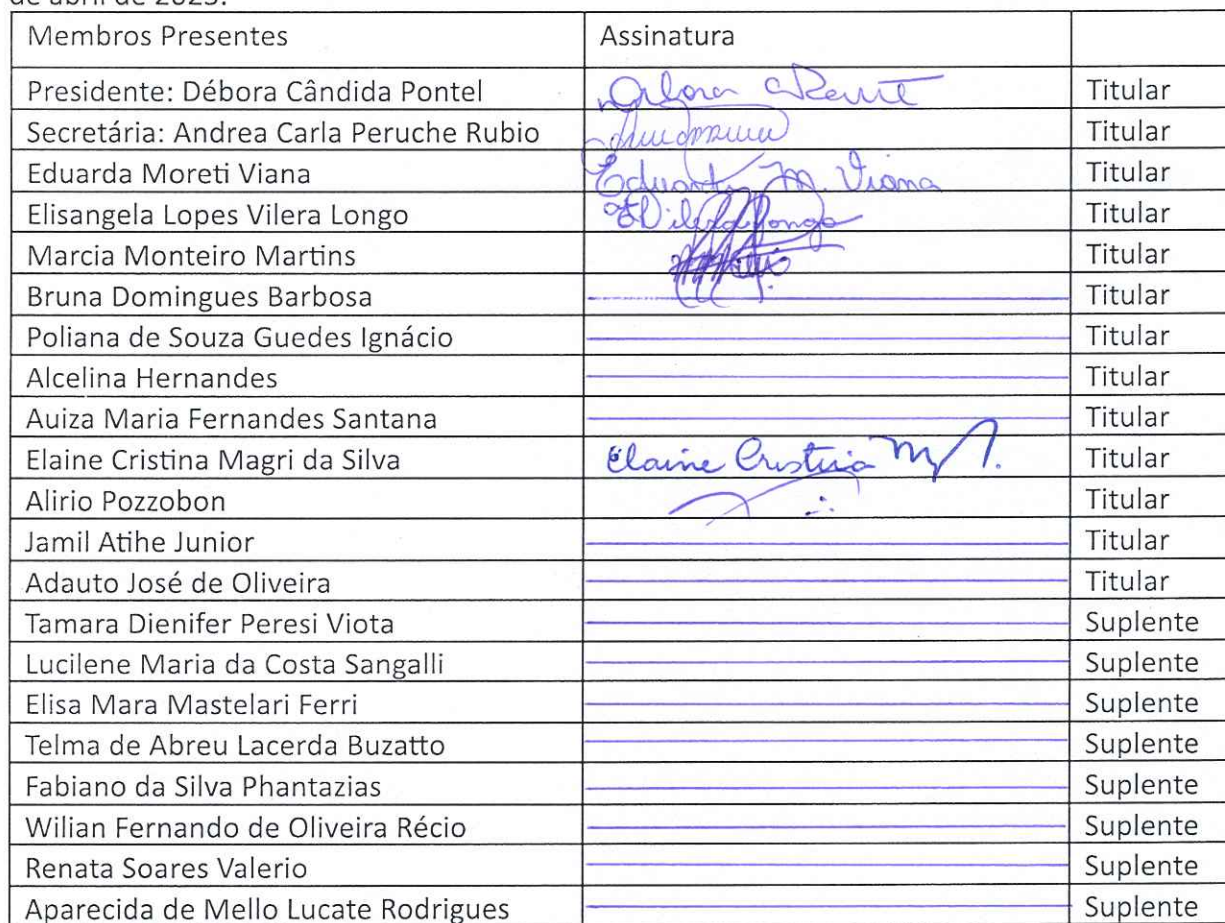 de abril de 2023.
Membros Presentes Assinatura
Presidente: Débora Cândida Pontel Titular
Secretária: Andrea Carla Peruche Rubio Titular
Eduarda Moreti Viana Eduarda M. Viana Titular
Elisangela Lopes Vilera Longo Titular
Marcia Monteiro Martins Titular
Bruna Domingues Barbosa Titular
Poliana de Souza Guedes Ignácio Titular
Alcelina Hernandes Titular
Auiza Maria Fernandes Santana Titular
Elaine Cristina Magri da Silva Elaine Cristina Titular
Alirio Pozzobon Titular
Jamil Atihe Junior Titular
Adauto José de Oliveira Titular
Tamara Dienifer Peresi Viota Suplente
Lucilene Maria da Costa Sangalli Suplente
Elisa Mara Mastelari Ferri Suplente
Telma de Abreu Lacerda Buzatto Suplente
Fabiano da Silva Phantazias Suplente
Wilian Fernando de Oliveira Récio Suplente
Renata Soares Valerio Suplente
Aparecida de Mello Lucate Rodrigues Suplente